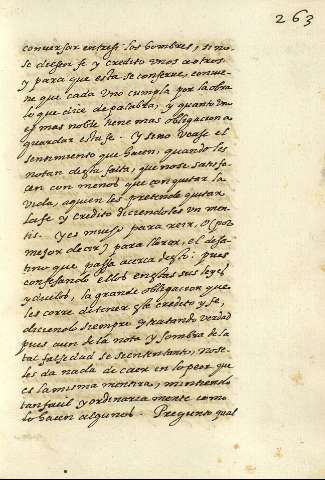 263
conversar entressi los hombres, si no
se diessen fe y credito unos a otros.
y para que esta se conserve, convie
ne que cada uno cumpla por la obra
lo que dice de palabra, y quanto uno
es mas noble tiene mas obligacion a
guardar esta fe. Y sino vease el
sentimiento que hacen, quando les
notan desta falta, que no se satisfa
cen con menos que con quitar la
vida, a quien les pretende quitar
la fe y credito diciendoles un men
tis. Cyes muess para reir, o (por
mejor decir) para llorar, el desa
tino que passa acerca desto. pues
confesando ellos en estas sus leyes
y duelos, la grande obligacion que
les corre de tener esta credito y fe,
diciendo siempre y tratando verdad
pues aun de la nota y sombra de la
tal falsedad se sienten tanto, no se
les da nada de caer en lo peor que
es la misma mentira, mintiendo
tan facil y ordinariamente como
lo hacen algunos. Pregunto qual